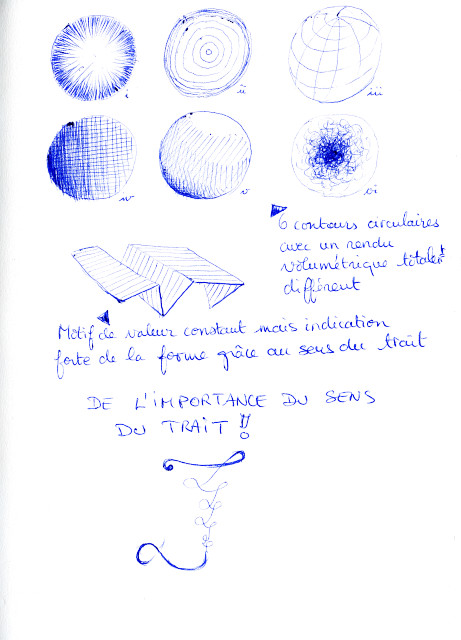 i
ii
iii
iv
v
vi
6 contours circulaires
avec un rendu
volumétrique totalet
différent
Motif de valeur constant mais indication
forte de la forme grâce au sens du trait
DE L'IMPORTANCE DU SENS
DU TRAIT !!